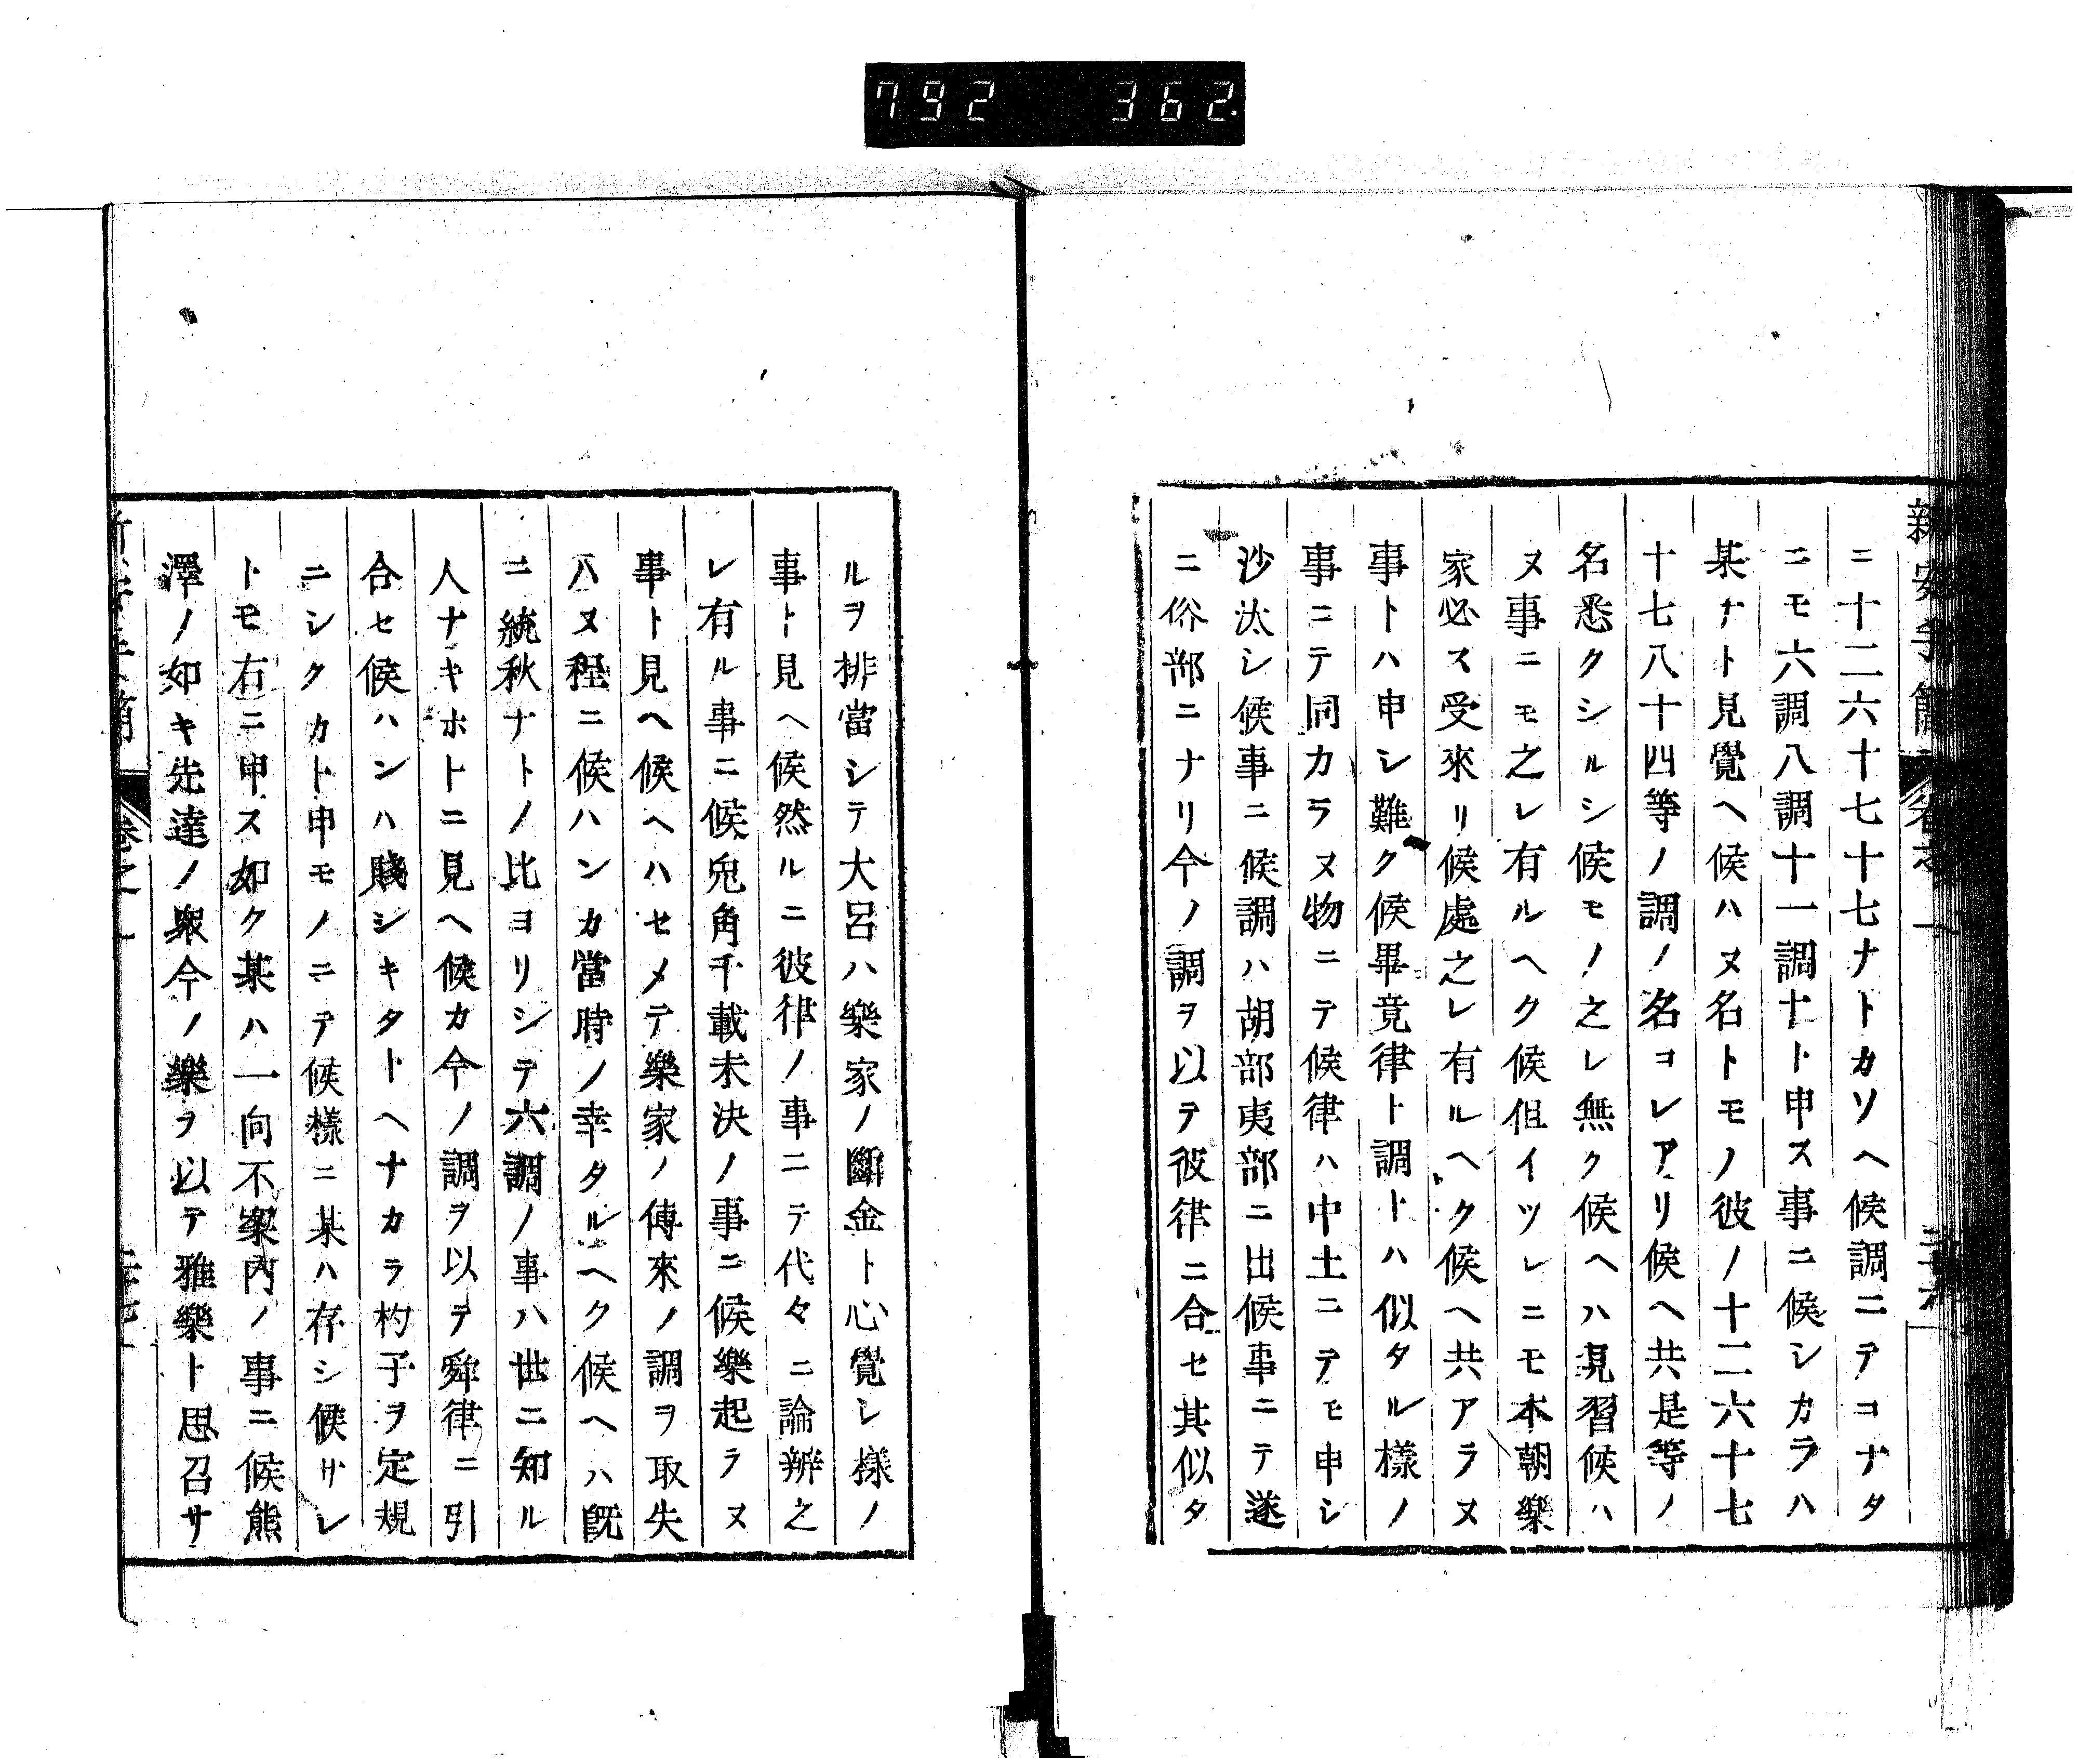 792 362
ニ十二六十七十七ナトカソヘ候調ニテコナタ
ニモ六調八調十一調ナト申ス事ニ候シカラハ
某ナト見覺ヘ候ハヌ名トモノ彼ノ十二六十七
十七八十四等ノ調ノ名コレアリ候ヘ共是等ノ
名悉クシルシ候モノ之レ無ク候ヘハ見習候ハ
ヌ事ニモ之レ有ルヘク候但イツレニモ本朝樂
家必ス受來リ候處之レ有ルヘク候ヘ共アラヌ
事トハ申シ難ク候畢竟律ト調トハ似タル樣ノ
事ニテ同カラヌ物ニテ候律ハ中土ニテモ申シ
沙汰シ候事ニ候調ハ胡部夷部ニ出候事ニテ遂
ニ俗部ニナリ今ノ調ヲ以テ彼律ニ合セ其似タ
ルヲ排當シテ大呂ハ樂家ノ斷金ト心覺レ樣ノ
事ト見ヘ候然ルニ彼律ノ事ニテ代々ニ論辨之
レ有ル事ニ候兎角千載未決ノ事ニ候樂起ラヌ
事ト見ヘ候ヘハセメテ樂家ノ傳來ノ調ヲ取失
ハヌ程ニ候ハンカ當時ノ幸タルヘク候ヘハ既
ニ統秋ナトノ比ヨリシテ六調ノ事ハ世ニ知ル
人ナキホトニ見ヘ候カ今ノ調ヲ以テ舜律ニ引
合セ候ハンハ賤シキタトヘナカラ杓子ヲ定規
ニシクカト申モノニテ候樣ニ某ハ存シ候サレ
トモ右ニ申ス如ク某ハ一向不案內ノ事ニ候熊
澤ノ如キ先達ノ衆今ノ樂ヲ以テ雅樂ト思召サ
卷之一